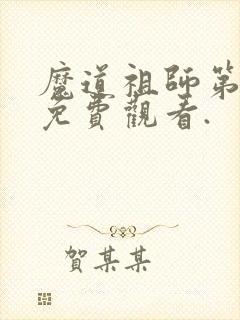 魔道祖師第
免費觀看.
賀某某